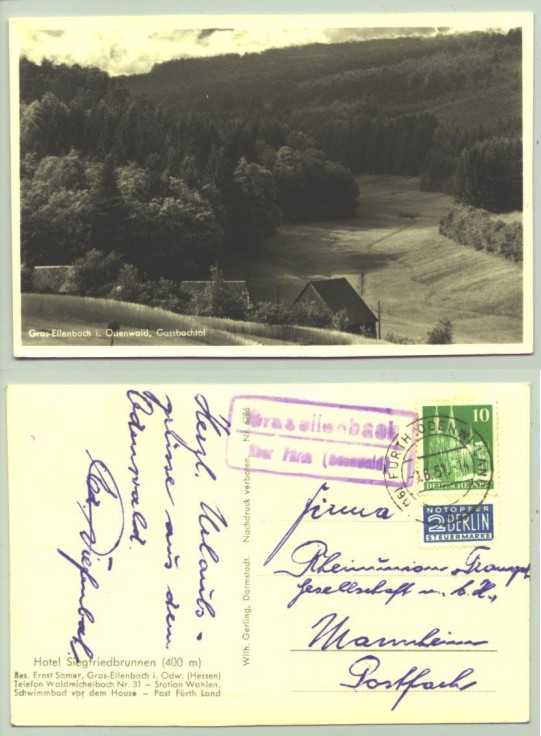 Gras-Ellenbach i. Odenwald, Gassbachtal
Herzl. Urlaubs-
grüsse aus dem
Odenwald.
Diefenbach
Hotel Siegfriedbrunnen (400 m)
Bes. Ernst Samer, Gras-Ellenbach i. Odw. (Hessen)
Telefon Waldmichelbach Nr. 31 — Station Wahlen,
Schwimmbad vor dem Hause — Post Fürth Land
With. Gerling, Darmstadt. Nachdruck verboten. Nr.
Grasellenbach
über Fürth (Odenwald)
FÜRTH (ODENW)
10
DEUTSCHE POST
NOTOPFER
2 BERLIN
STEUERMARKE
Firma
Rheinunion Transport
Gesellschaft m. b. H.,
Mannheim
Postfach